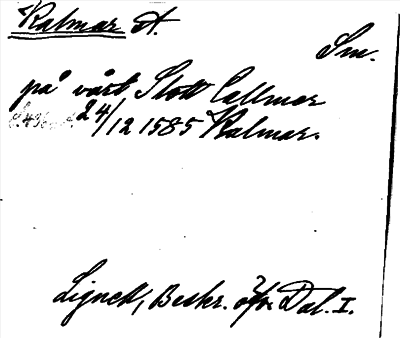 Kalmar st.
Sm.
på vårt Slott Callmar
24/12 1585 Kalmar.
Lignell, Beskr. öfver Dal. I.